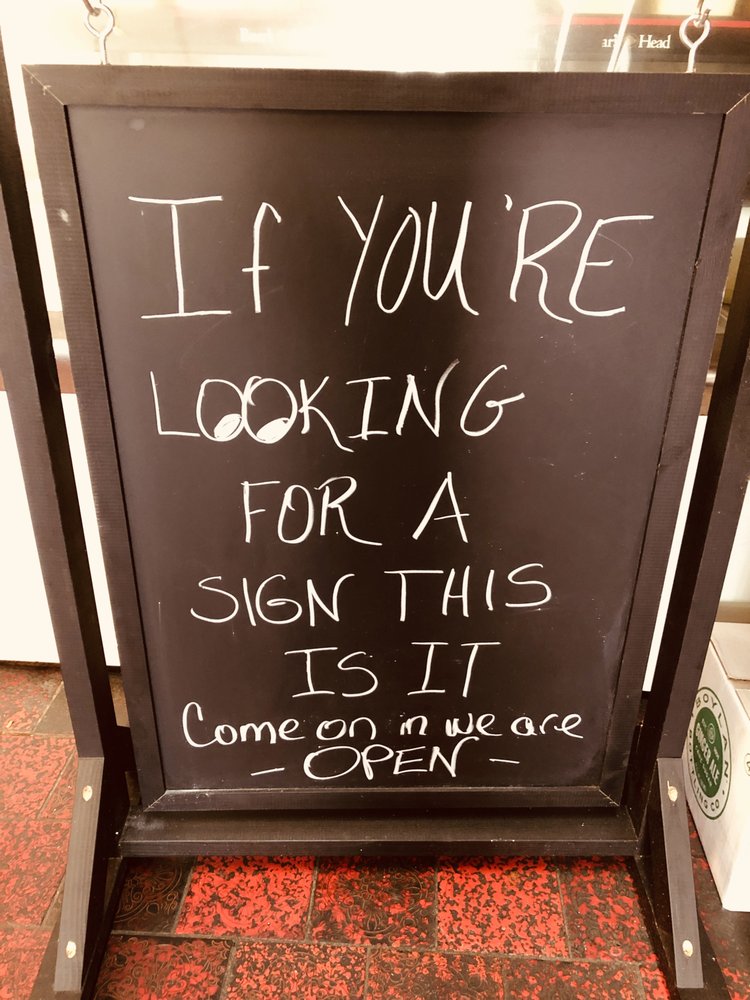 Head
If YOU'RE
LOOKING
FOR A
SIGN THIS
IS IT
Come on in we are
- OPEN -
BOYLAN